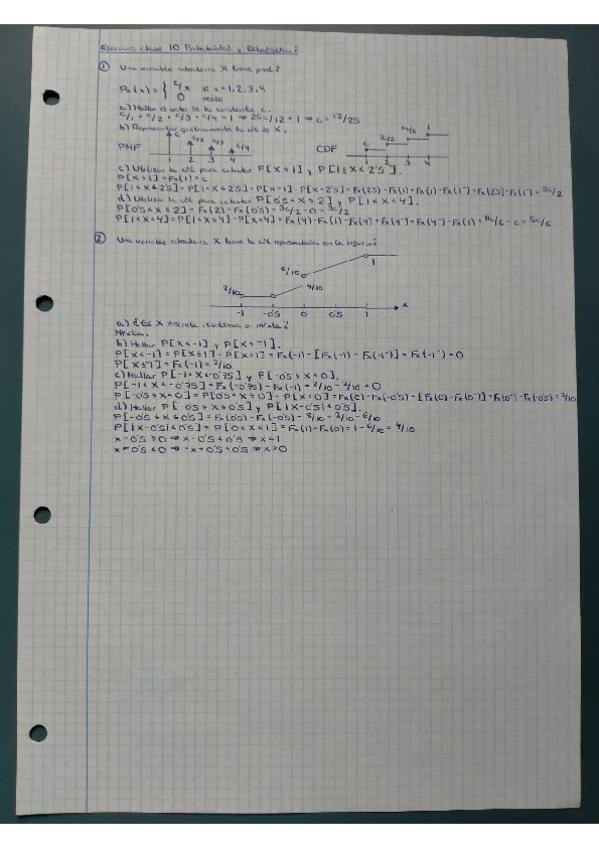 Ejercicios clase 10 Probabilidad y Estadística:
① Una variable aleatoria X tiene pmf:
Px(x) = { c/x x = 1, 2, 3, 4
0 resto
a) Hallar el valor de la constante c.
c/1 + c/2 + c/3 + c/4 = 1 ⇒ 25c/12 = 1 ⇒ c = 12/25
b) Representar gráficamente la cdf de X.
PMF c c/2 c/3 c/4 CDF c 3c/2 11c/6 1
1 2 3 4 1 2 3 4
c) Utilizar la cdf para calcular P[X = 1] y P[1 ≤ X < 2'5].
P[X = 1] = Fx(1) = c
P[1 ≤ X < 2'5] = P[1 < X ≤ 2'5] + P[X = 1] - P[X = 2'5] = Fx(2'5) - Fx(1) + Fx(1) - Fx(1⁻) = Fx(2'5) - Fx(1⁻) = 3c/2
d) Utilizar la cdf para calcular P[0'5 < X ≤ 2] y P[1 < X < 4].
P[0'5 < X ≤ 2] = Fx(2) - Fx(0'5) = 3c/2 - 0 = 3c/2
P[1 < X < 4] = P[1 < X ≤ 4] - P[X = 4] = Fx(4) - Fx(1) - Fx(4) + Fx(4⁻) = Fx(4⁻) - Fx(1) = 11c/6 - c = 5c/6
② Una variable aleatoria X tiene la cdf representada en la figura:
2/10 6/10 4/10 1
-1 -0'5 0 0'5 1 x
a) ¿Es X discreta, continua o mixta?
Mixta.
b) Hallar P[X < -1] y P[X ≤ -1].
P[X < -1] = P[X ≤ 1] - P[X = 1] = Fx(-1) - [Fx(-1) - Fx(-1⁻)] = Fx(-1⁻) = 0
P[X ≤ -1] = Fx(-1) = 2/10
c) Hallar P[-1 < X < -0'75] y P[-0'5 ≤ X < 0].
P[-1 < X < -0'75] = Fx(-0'75) - Fx(-1) = 2/10 - 2/10 = 0
P[-0'5 ≤ X < 0] = P[0'5 < X ≤ 0] - P[X = 0] = Fx(0) - Fx(-0'5) - [Fx(0) - Fx(0⁻)] = Fx(0⁻) - Fx(-0'5) = 2/10
d) Hallar P[-0'5 ≤ X ≤ 0'5] y P[|X - 0'5| < 0'5].
P[-0'5 ≤ X ≤ 0'5] = Fx(0'5) - Fx(-0'5) = 8/10 - 2/10 = 6/10
P[|X - 0'5| < 0'5] = P[0 < X < 1] = Fx(1) - Fx(0) = 1 - 6/10 = 4/10
x - 0'5 ≥ 0 ⇒ x - 0'5 < 0'5 ⇒ x < 1
x - 0'5 < 0 ⇒ -x + 0'5 < 0'5 ⇒ x > 0